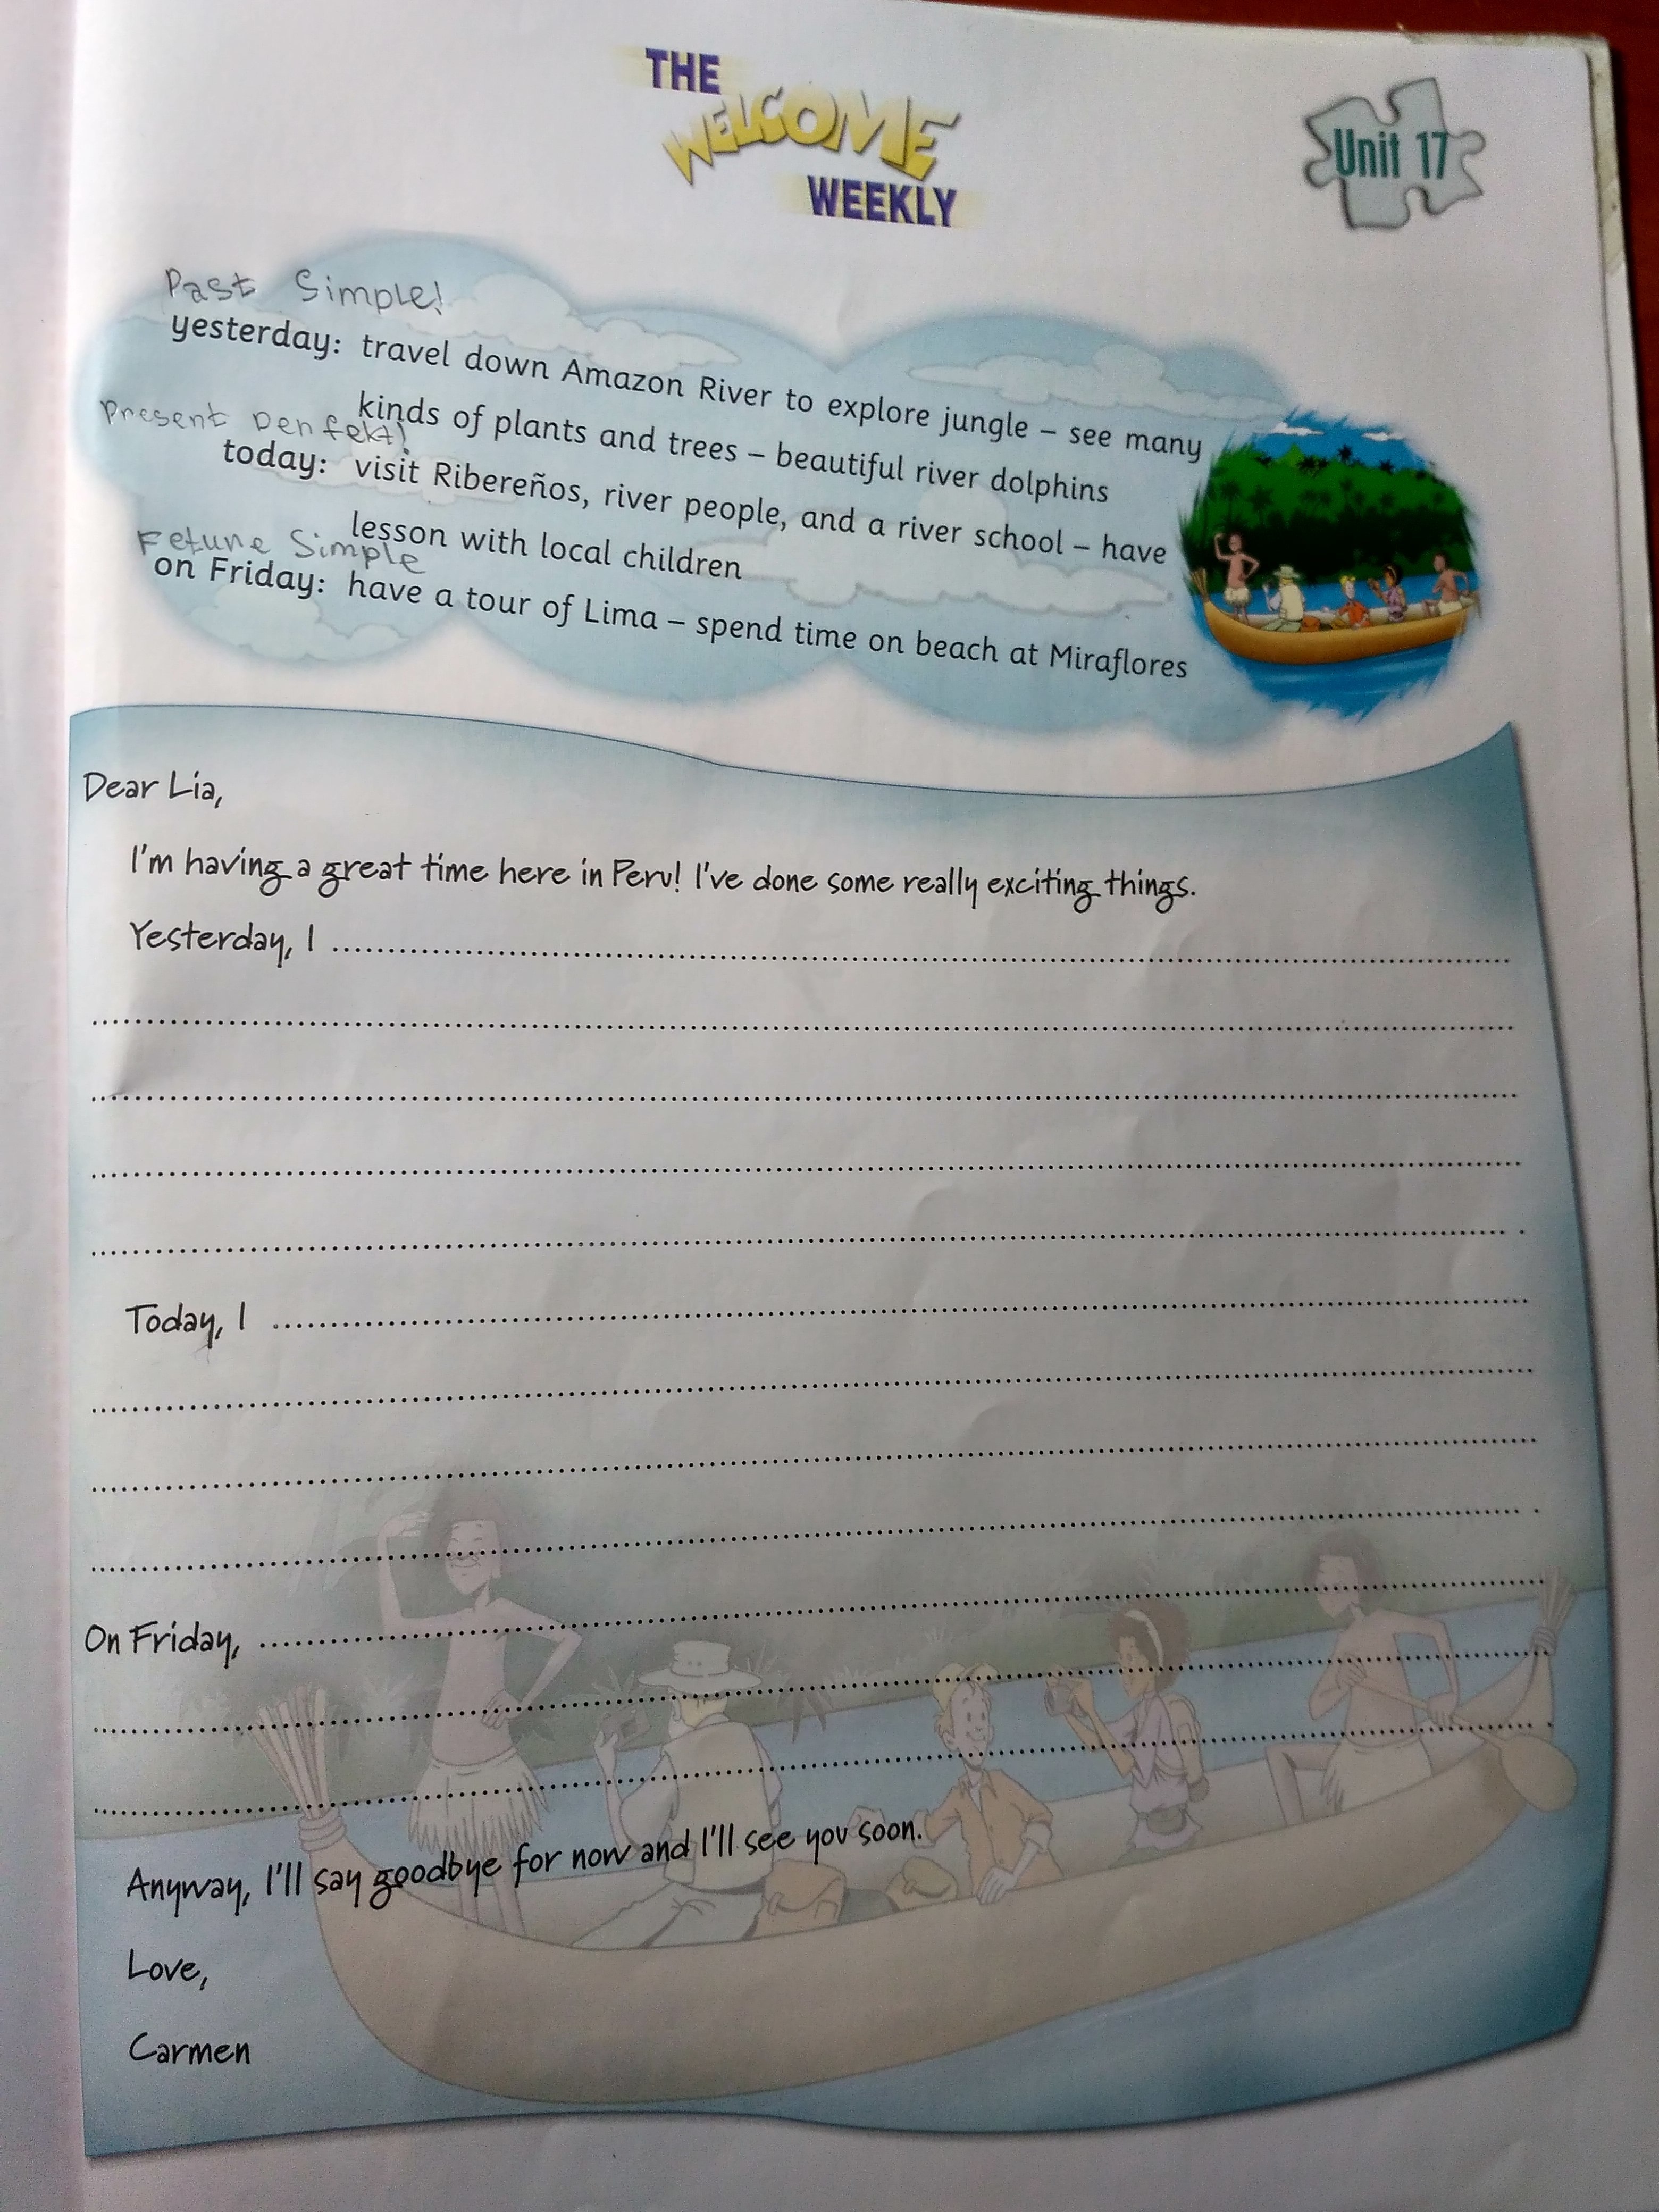 THE
WELCOME
WEEKLY
Unit 17
Past Simple!
yesterday: travel down Amazon River to explore jungle – see many
kinds of plants and trees – beautiful river dolphins
Present Denfekt!
today: visit Ribereños, river people, and a river school – have
lesson with local children
Fetune Simple
on Friday: have a tour of Lima – spend time on beach at Miraflores
Dear Lia,
I'm having a great time here in Peru! I've done some really exciting things.
Yesterday, I
Today, I
On Friday,
Anyway, I'll say goodbye for now and I'll see you soon.
Love,
Carmen